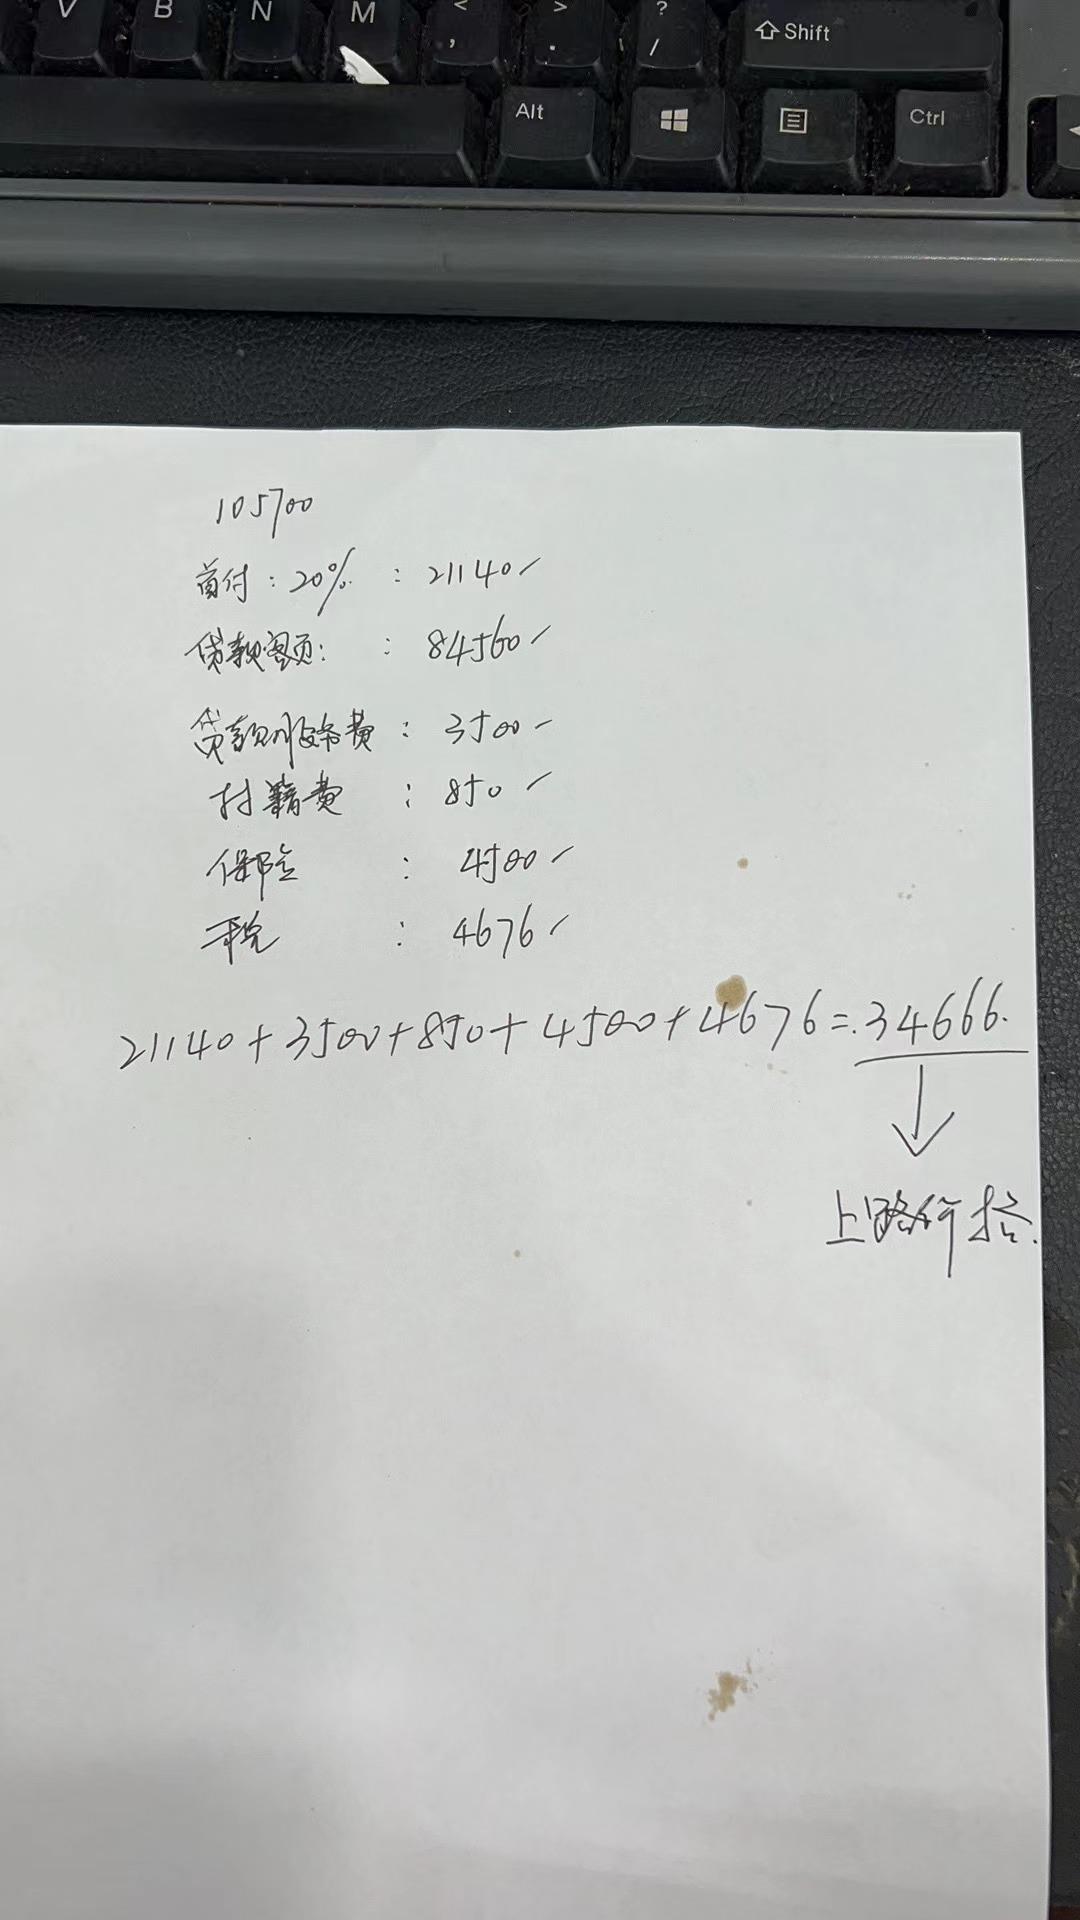 V B N M < , > . ? / Shift
Alt Ctrl
105700
首付:20% : 21140
贷款额: : 84560
贷款服务费 : 3500
材籍费 : 850
保险 : 4500
税 : 4676
21140+3500+850+4500+4676=34666.
上路价格.